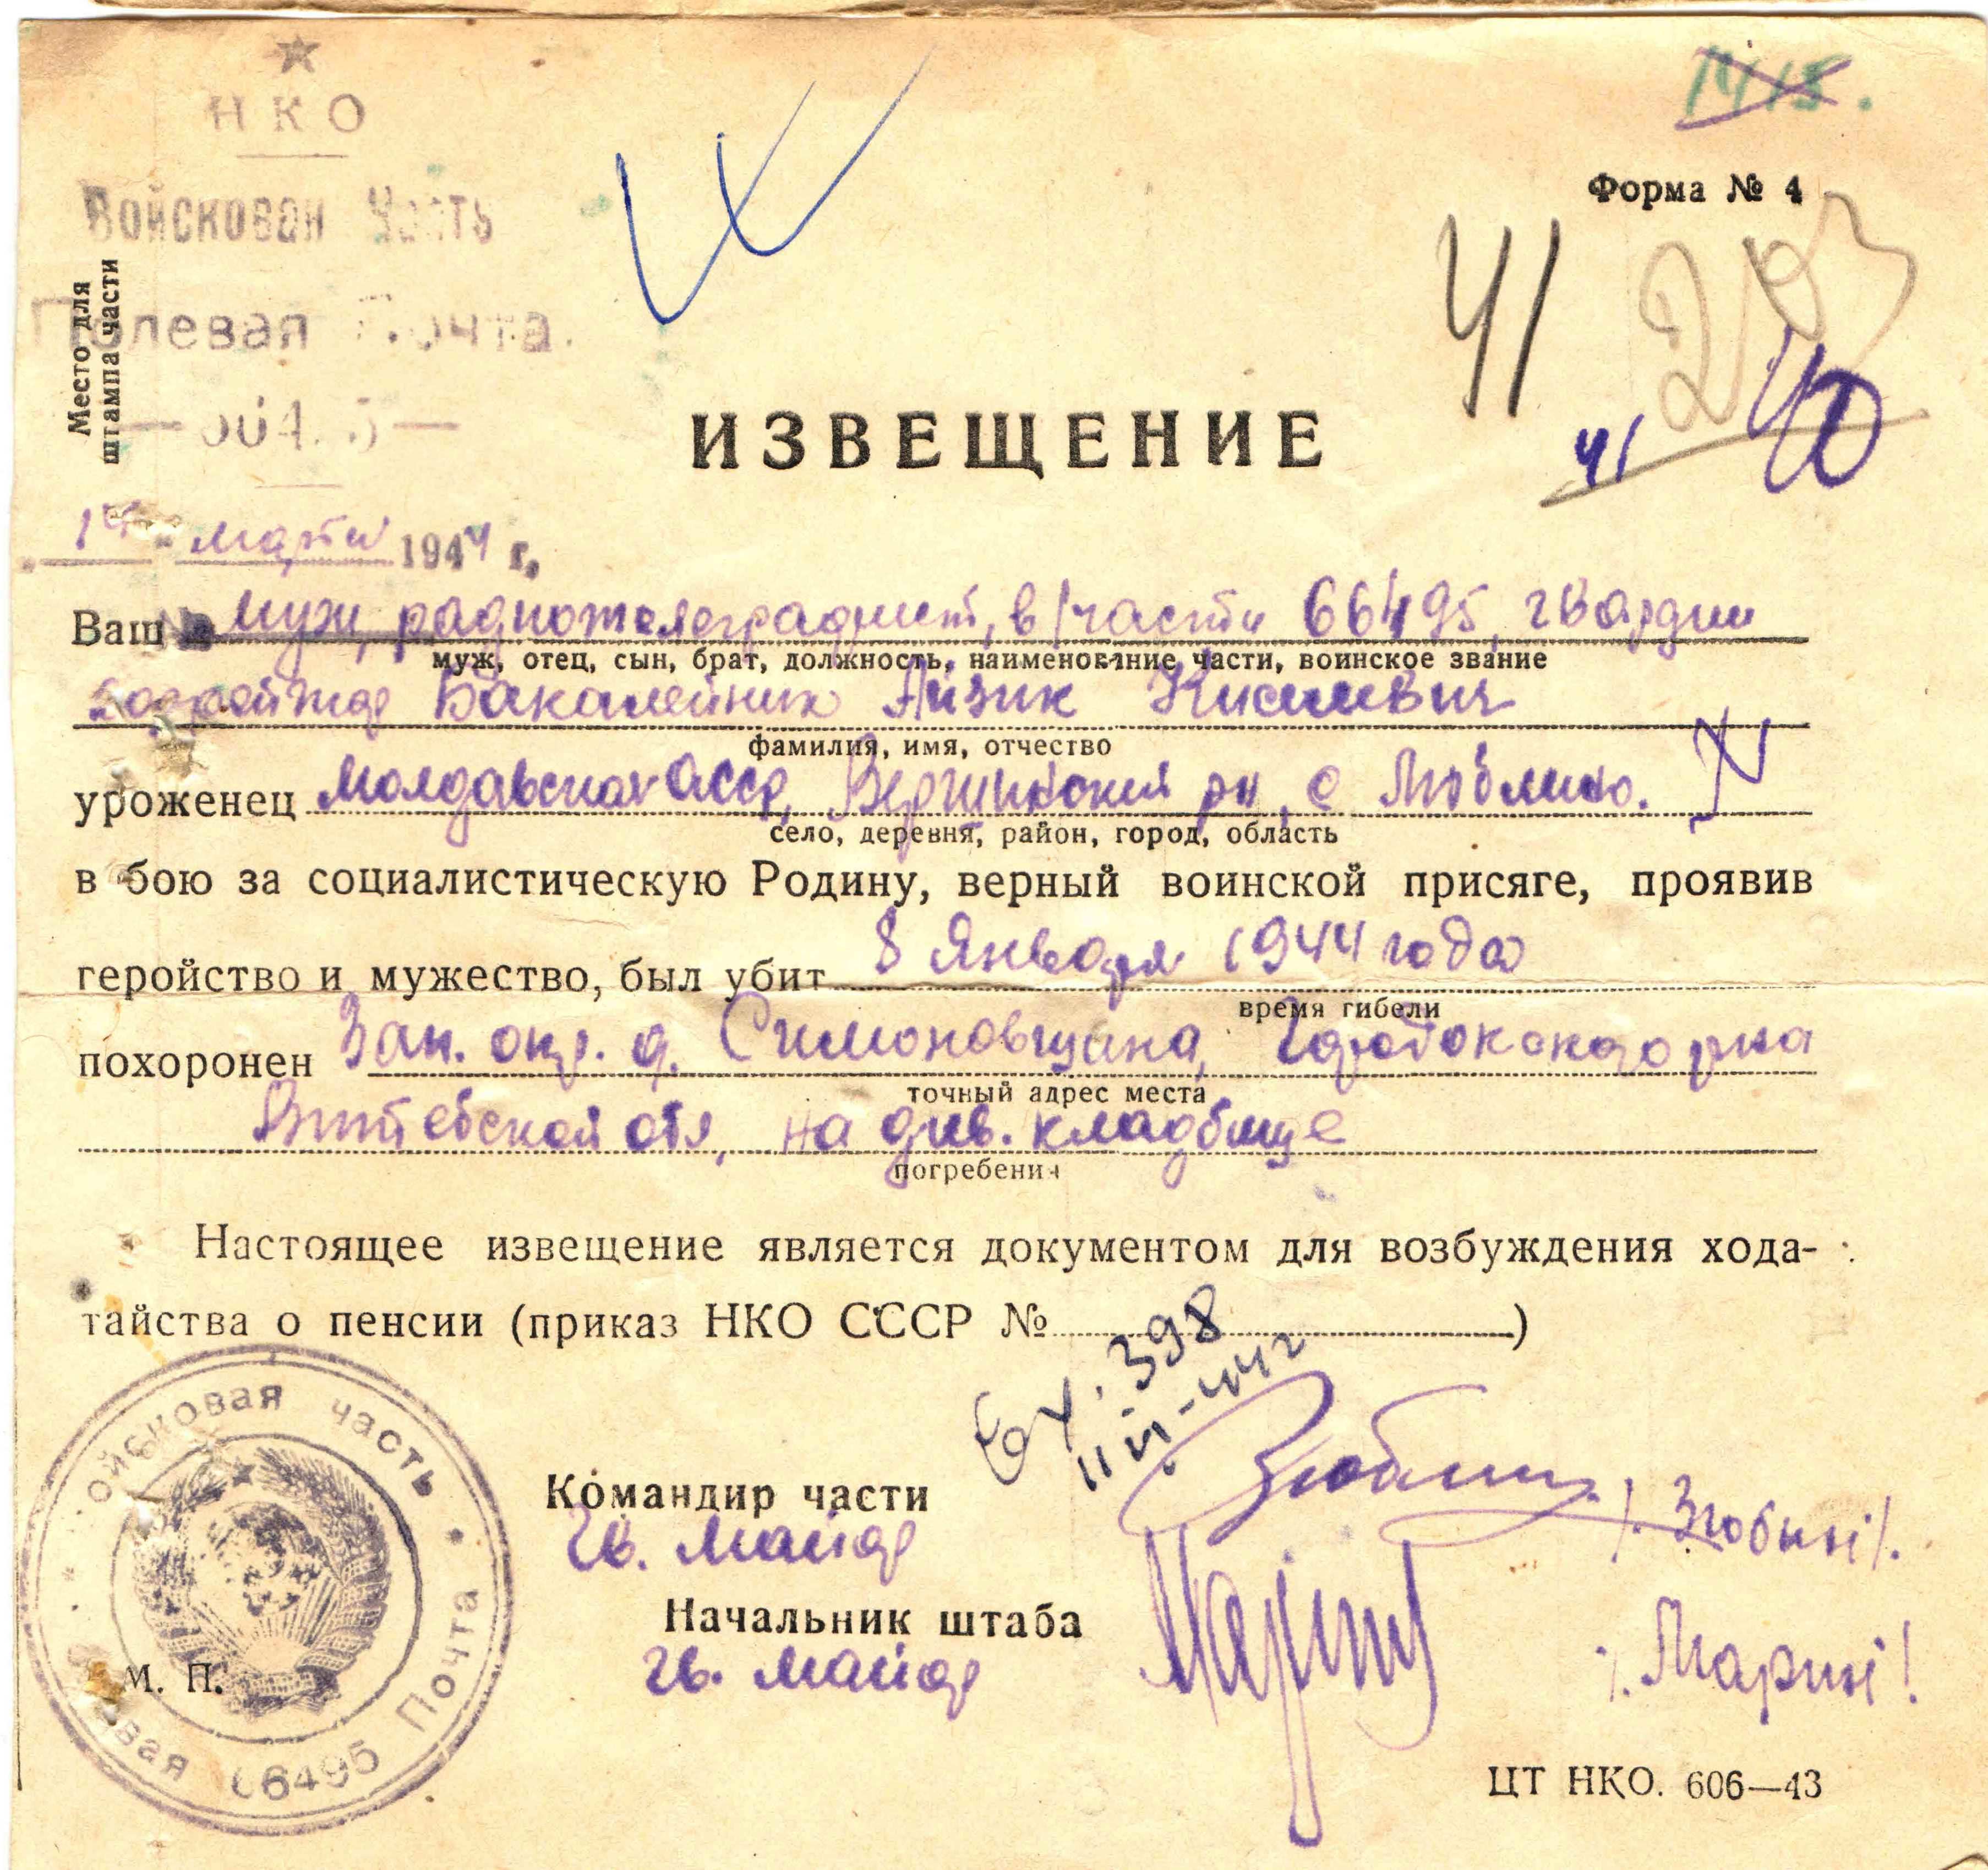 НКО
Войсковая Часть
Полевая Почта.
Место для штампа части
Форма № 4
41
41
40
ИЗВЕЩЕНИЕ
марта 1944 г.
Ваш муж, радиотелеграфист, в/части 66495, гвардии
муж, отец, сын, брат, должность, наименование части, воинское звание
Бакалейник Айзик Киселевич
фамилия, имя, отчество
уроженец Молдавская Асср, рн, с
село, деревня, район, город, область
в бою за социалистическую Родину, верный воинской присяге, проявив
геройство и мужество, был убит 8 Января 1944 года
время гибели
похоронен Зап. окр. д. Симоновщина, Городокского р-на
точный адрес места
Витебской обл, на див. кладбище
погребения
Настоящее извещение является документом для возбуждения хода-
тайства о пенсии (приказ НКО СССР № )
398
Командир части
Гв. майор
Зюбин /.
Начальник штаба
гв. майор
ойсковая часть
Почта
66495
вая
М. П.
ЦТ НКО. 606—43